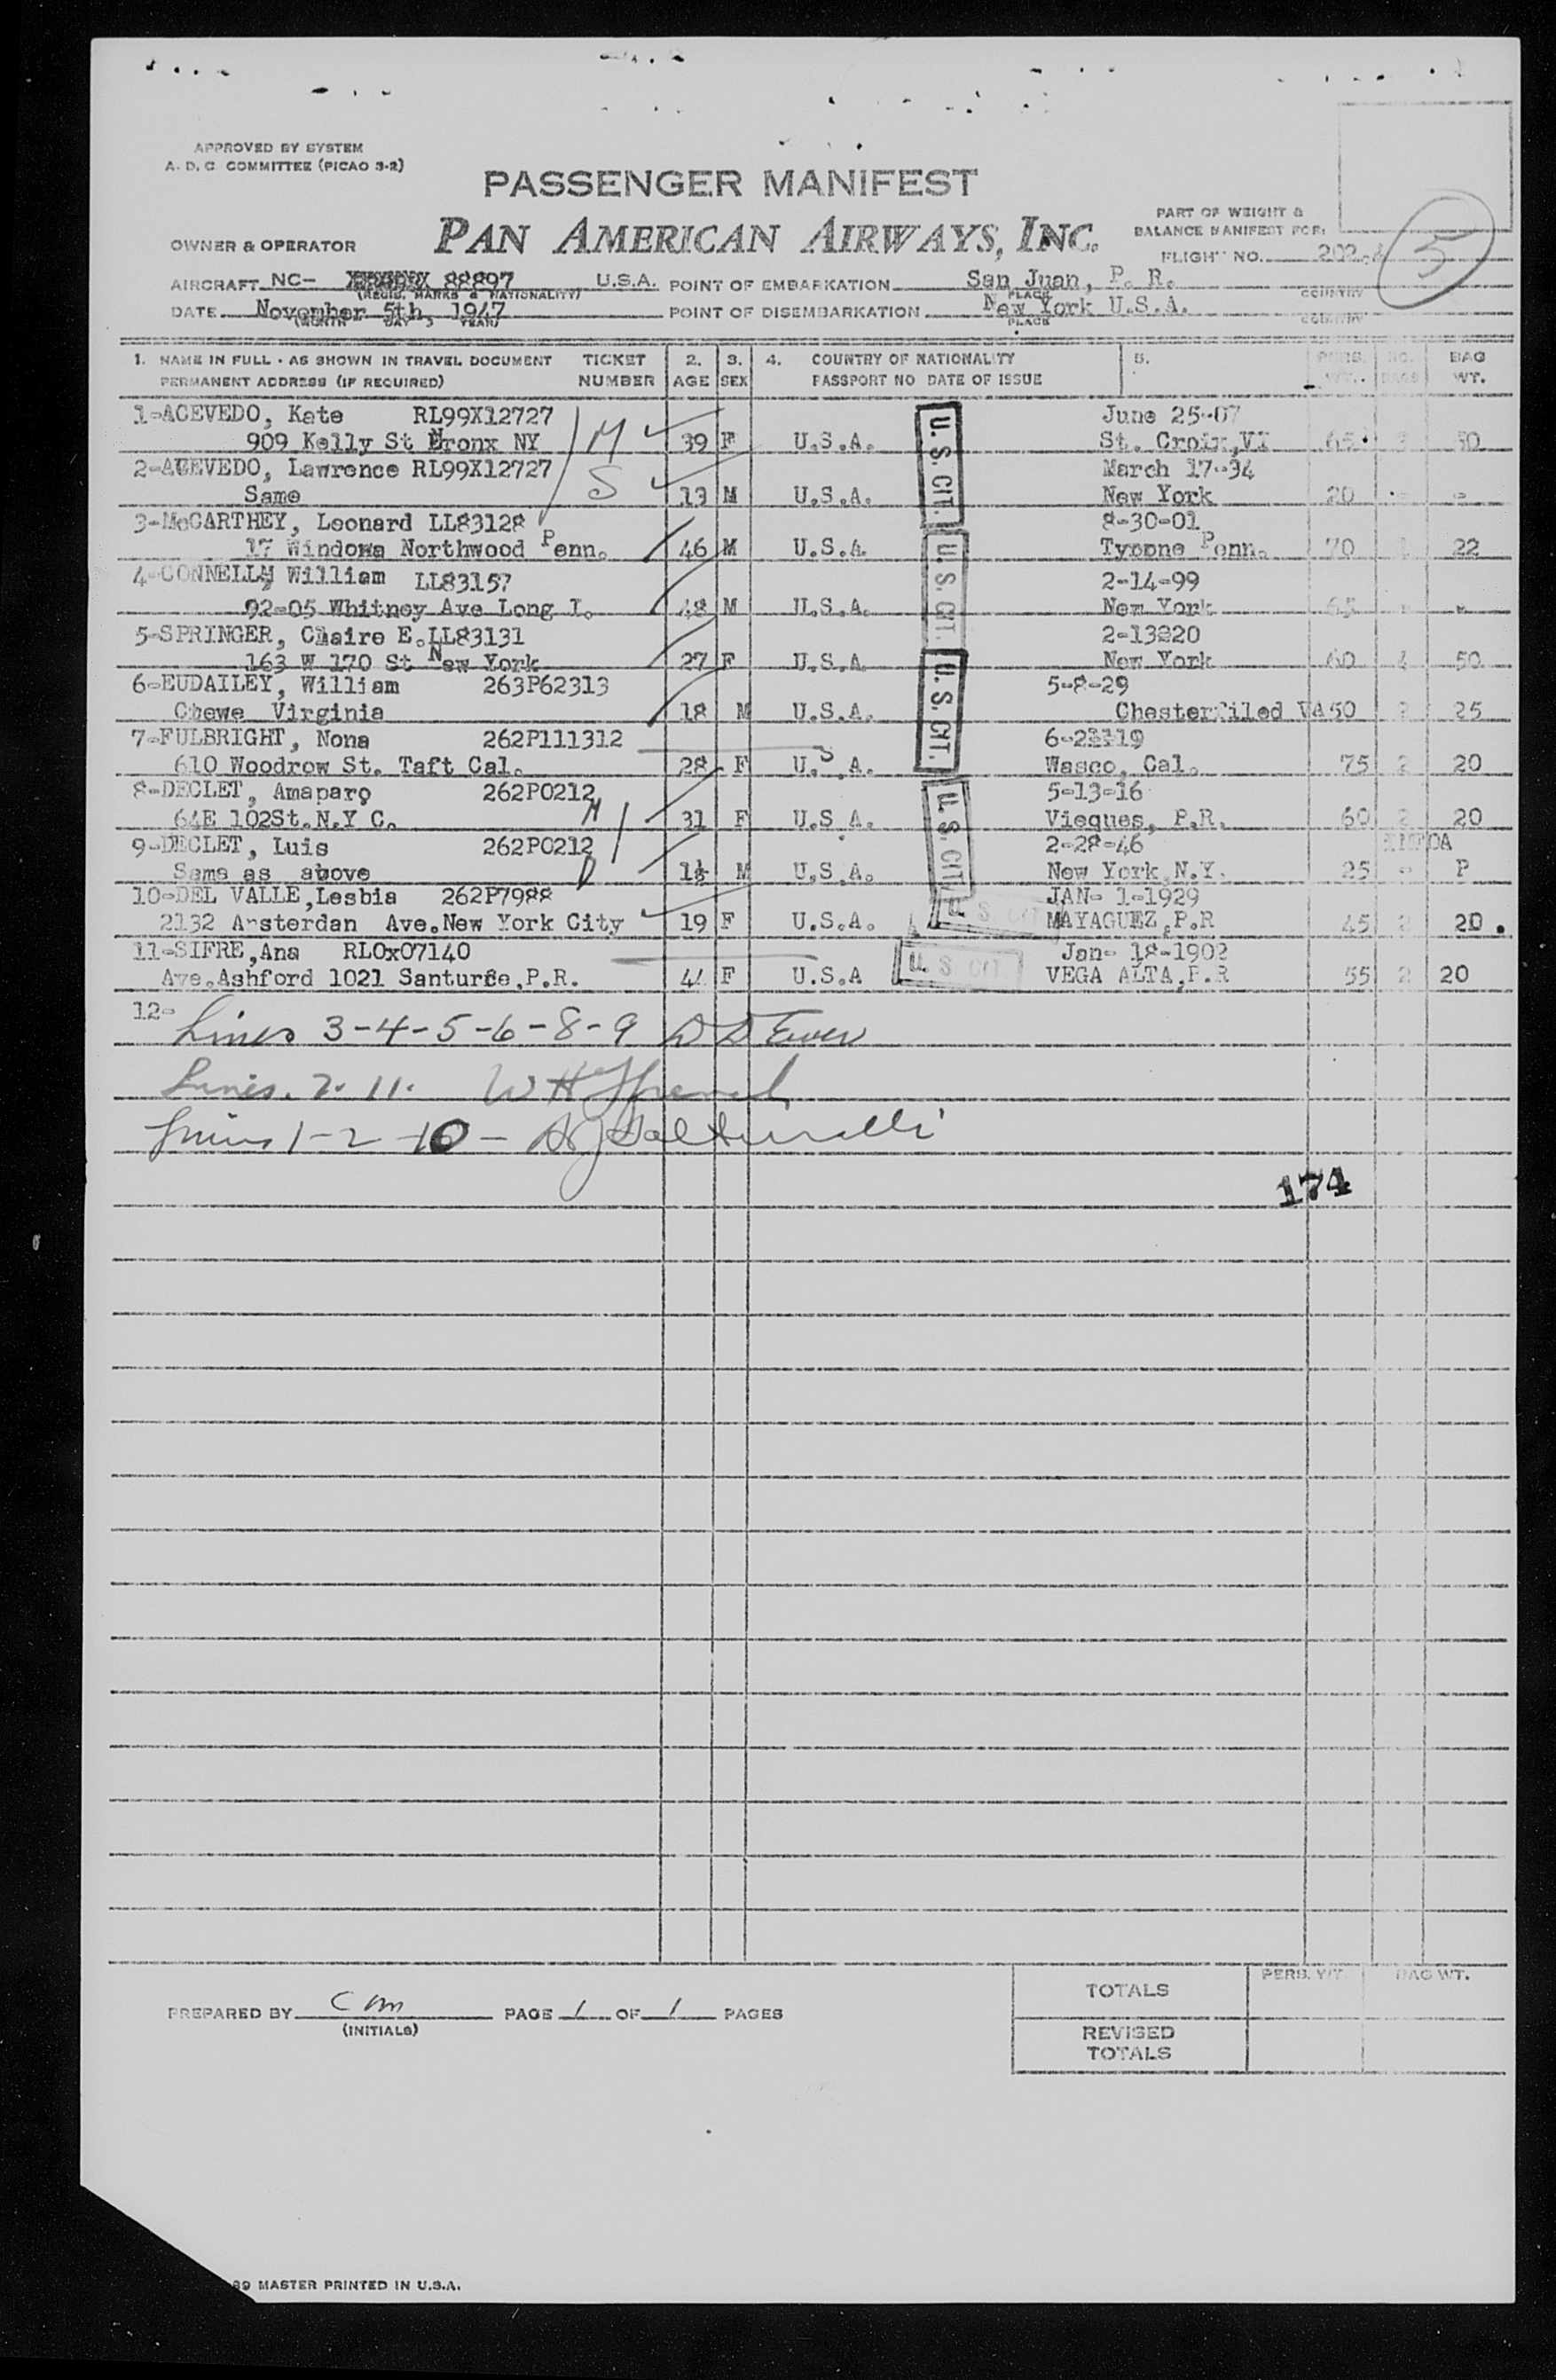 APPROVED BY SYSTEM
A. D. C. COMMITTEE (PICAO 3-2)
PASSENGER MANIFEST
PAN AMERICAN AIRWAYS, INC.
PART OF WEIGHT &
BALANCE MANIFEST FOR:
OWNER & OPERATOR
FLIGHT NO. 202
5
AIRCRAFT NC- 88897 U.S.A. POINT OF EMBARKATION San Juan, P. R.
(REGIS. MARKS & NATIONALITY) PLACE COUNTRY
DATE November 5th, 1947 POINT OF DISEMBARKATION New York U.S.A.
(MONTH DAY YEAR) PLACE COUNTRY
1. NAME IN FULL - AS SHOWN IN TRAVEL DOCUMENT TICKET 2. 3. 4. COUNTRY OF NATIONALITY 5. PERS. NO. BAG
PERMANENT ADDRESS (IF REQUIRED) NUMBER AGE SEX PASSPORT NO DATE OF ISSUE WT. BAGS WT.
1-ACEVEDO, Kate RL99X12727 June 25-07
909 Kelly St Bronx NY M 39 F U.S.A. U.S. CIT. St. Croix,VI 65 30
2-ACEVEDO, Lawrence RL99X12727 March 17-34
Same S 13 M U.S.A. New York 20 - -
3-McCARTHEY, Leonard LL83128 8-30-01
17 Windowa Northwood Penn. 46 M U.S.A. U.S. CIT. Tyrone Penn. 70 22
4-CONNELLY William LL83157 2-14-99
92-05 Whitney Ave Long I. 48 M U.S.A. New York 65 - -
5-SPRINGER, Claire E. LL83131 2-13220
163 W 170 St New York 27 F U.S.A. U.S. CIT. New York 60 50
6-EUDAILEY, William 263P62313 5-8-29
Chewe Virginia 18 M U.S.A. Chesterfiled VA 50 2 25
7-FULBRIGHT, Nona 262P111312 6-23319
610 Woodrow St. Taft Cal. 28 F U.S.A. Wasco, Cal. 75 2 20
8-DECLET, Amaparo 262P0212 M 5-13-16
64E 102St.N.Y C. 31 F U.S.A. U.S. CIT. Vieques, P.R. 60 2 20
9-DECLET, Luis 262P0212 2-28-46
Same as above D 1½ M U.S.A. New York,N.Y. 25 - P
10-DEL VALLE,Lesbia 262P7988 JAN- 1-1929
2132 Amsterdan Ave.New York City 19 F U.S.A. U. S. CIT MAYAGUEZ,P.R 45 2 20
11-SIFRE,Ana RLOx07140 Jan- 18-1902
Ave.Ashford 1021 Santurce,P.R. 44 F U.S.A U. S CIT VEGA ALTA,P.R 55 2 20
12-
Lines 3-4-5-6-8-9 D D Ewen
Lines. 7. 11. W H
Lines 1-2-10-
174
TOTALS PERS. WT. BAG WT.
PREPARED BY C m PAGE 1 OF 1 PAGES
(INITIALS)
REVISED
TOTALS
89 MASTER PRINTED IN U.S.A.